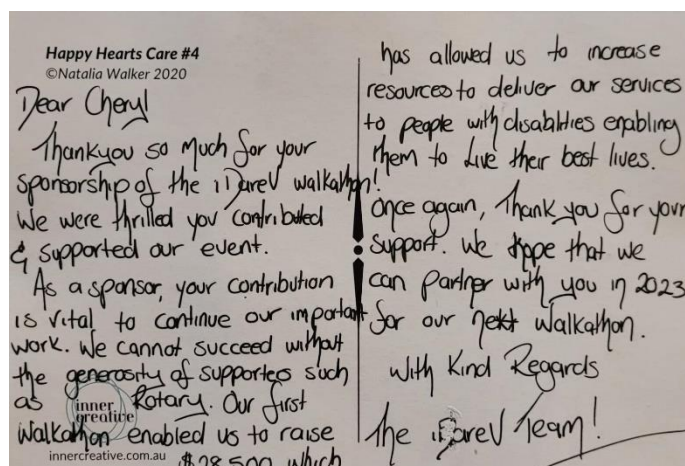 Happy Hearts Care #4
©Natalia Walker 2020
Dear Cheryl
Thankyou so much for your
sponsorship of the iDareV walkathon!
We were thrilled you contributed
& supported our event.
As a sponsor, your contribution
is vital to continue our important
work. We cannot succeed without
the generosity of supporters such
as Rotary. Our first
Walkathon enabled us to raise
$28,500 which
inner
creative
innercreative.com.au
has allowed us to increase
resources to deliver our services
to people with disabilities enabling
them to Live their best lives.
Once again, Thank you for your
support. We hope that we
can partner with you in 2023
for our next Walkathon.
With Kind Regards
The iDareV Team!